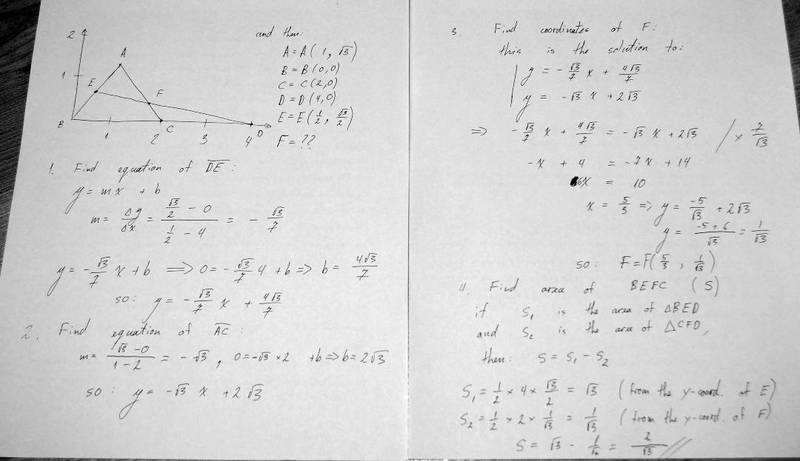 2
1
A
E
F
B
C
D
1
2
3
4
and then:
A = A(1, √3)
B = B(0,0)
C = C(2,0)
D = D(4,0)
E = E(1/2, √3/2)
F = ??
1. Find equation of DE:
y = mx + b
m = Δy/Δx = (√3/2 - 0)/(1/2 - 4) = - √3/7
y = - √3/7 x + b ⟹ 0 = - √3/7 4 + b ⟹ b = 4√3/7
so: y = - √3/7 x + 4√3/7
2. Find equation of AC:
m = (√3 - 0)/(1 - 2) = - √3, 0 = -√3 × 2 + b ⟹ b = 2√3
so: y = -√3 x + 2√3
3. Find coordinates of F:
this is the solution to:
y = - √3/7 x + 4√3/7
y = - √3 x + 2√3
⟹ - √3/7 x + 4√3/7 = - √3 x + 2√3 / × 7/√3
-x + 4 = -7x + 14
6x = 10
x = 5/3 ⟹ y = -5/√3 + 2√3
y = (-5 + 6)/√3 = 1/√3
so: F = F(5/3, 1/√3)
4. Find area of BEFC (S)
if S₁ is the area of ΔBED
and S₂ is the area of ΔCFD,
then: S = S₁ - S₂
S₁ = 1/2 × 4 × √3/2 = √3 (from the y-coord. of E)
S₂ = 1/2 × 2 × 1/√3 = 1/√3 (from the y-coord. of F)
S = √3 - 1/√3 = 2/√3 //